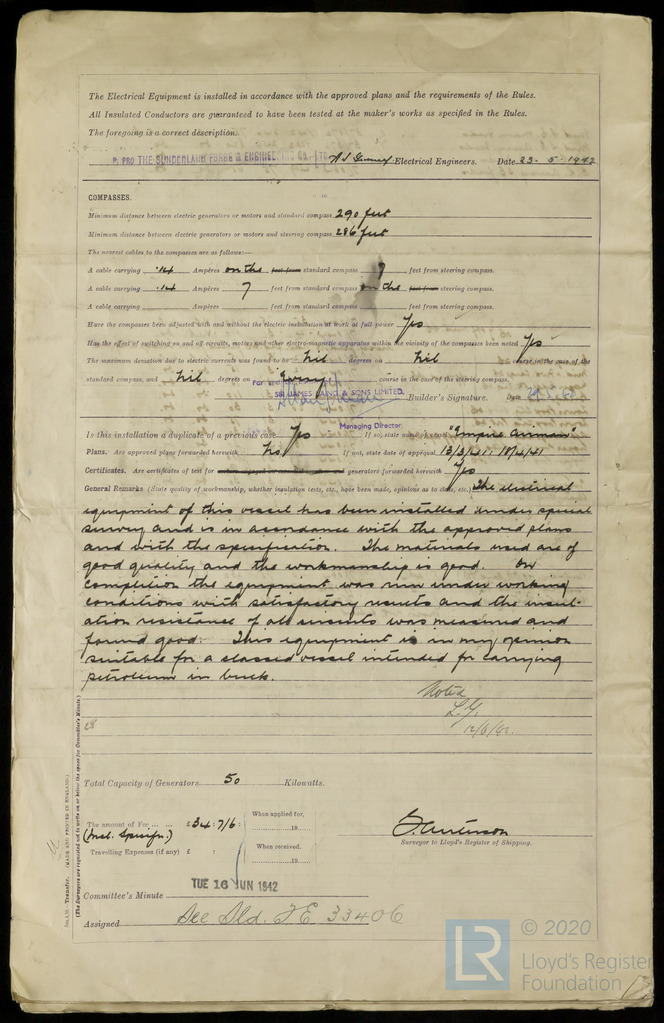 The Electrical Equipment is installed in accordance with the approved plans and the requirements of the Rules.
All Insulated Conductors are guaranteed to have been tested at the maker's works as specified in the Rules.
The foregoing is a correct description.
P. PRO THE SUNDERLAND FORGE & ENGINEERING CO. LTD Electrical Engineers. Date 23-5-1942
COMPASSES.
Minimum distance between electric generators or motors and standard compass 290 feet
Minimum distance between electric generators or motors and steering compass 286 feet
The nearest cables to the compasses are as follows:—
A cable carrying .14 Ampères on the feet from standard compass 7 feet from steering compass.
A cable carrying .14 Ampères 7 feet from standard compass on the feet from steering compass.
A cable carrying Ampères feet from standard compass feet from steering compass.
Have the compasses been adjusted with and without the electric installation at work at full power Yes
Has the effect of switching on and off circuits, motors and other electro-magnetic apparatus within the vicinity of the compasses been noted Yes
The maximum deviation due to electric currents was found to be Nil degrees on Nil course in the case of the
standard compass, and Nil degrees on Every course in the case of the steering compass.
For and
SIR JAMES LAING & SONS LIMITED.
Builder's Signature. Date
Managing Director.
Is this installation a duplicate of a previous case Yes If so, state name of vessel "Empire Airman"
Plans. Are approved plans forwarded herewith No If not, state date of approval 13/3/41: 18/4/41
Certificates. Are certificates of test for generators forwarded herewith Yes
General Remarks (State quality of workmanship, whether insulation tests, etc., have been made, opinions as to class, etc.) The electrical
equipment of this vessel has been installed under special
survey and is in accordance with the approved plans
and with the specification. The materials used are of
good quality and the workmanship is good. On
completion the equipment was run under working
conditions with satisfactory results and the insul-
ation resistance of all circuits was measured and
found good. This equipment is in my opinion
suitable for a classed vessel intended for carrying
petroleum in bulk.
Noted
L.Y.
12/6/42.
Total Capacity of Generators 50 Kilowatts.
The amount of Fee £34:7/6: When applied for, 19
(Incl. Specifn.)
Travelling Expenses (if any) £ : : When received, 19
Surveyor to Lloyd's Register of Shipping.
Committee's Minute TUE 16 JUN 1942
Assigned See Sld. F.E. 33406
Transfer. (MADE AND PRINTED IN ENGLAND.)
(The Surveyors are requested not to write on or below the space for Committee's Minute.)
LR © 2020
Lloyd's Register
Foundation